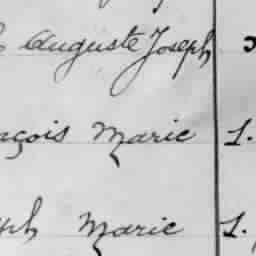 Auguste Joseph
açois Marie 1.
ph Marie 1.